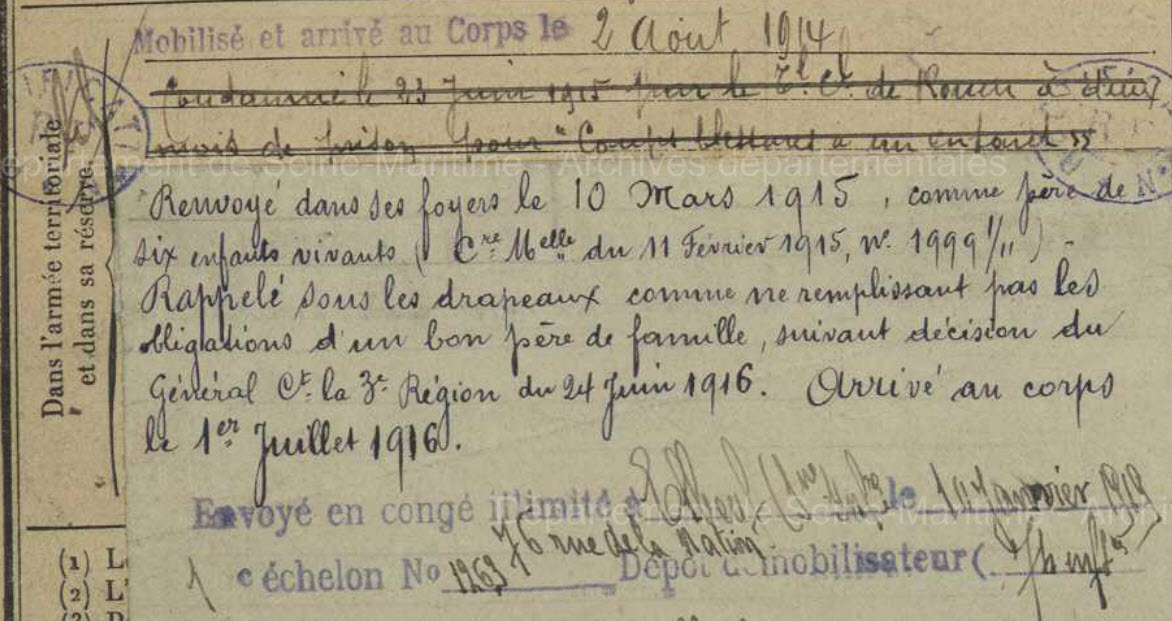 Mobilisé et arrivé au Corps le 2 Août 1914
Condamné le 23 Juin 1915 par le T.l C.l de Rouen à deux
mois de prison pour "Coups blessures à un enfant"
Département de Seine-Maritime - Archives départementales
Renvoyé dans ses foyers le 10 Mars 1915, comme père de
six enfants vivants (Cre Melle du 11 Février 1915, No 1999 1/11) -
Rappelé sous les drapeaux comme ne remplissant pas les
obligations d'un bon père de famille, suivant décision du
Général Ct la 3e Région du 24 Juin 1916. Arrivé au corps
le 1er Juillet 1916.
Envoyé en congé illimité à Elbeuf (Sne Infre) le 10 Janvier 1919
76 rue de la Nation
1 e échelon No 1263 Dépôt démobilisateur (
Dans l'armée territoriale
et dans sa réserve.
(1) L
(2) L'